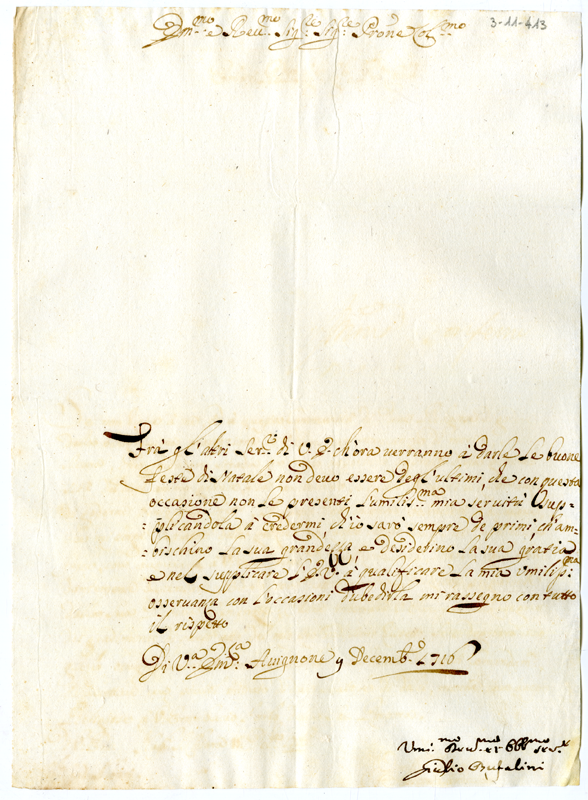 3-11-413
Em.mo e Re.mo Sig.re Sig.re Prone Col.mo
Frà gl'altri Ser.ri di V. E. ch'ora verranno à darle le buone
feste di Natale non devo essere degl'ultimi, che con questa
occasione non le presenti l'umilis.ma mia servitù sup-
-plicandola à credermi, ch'io sarò sempre de primi, ch'am-
-bischino la sua grandezza e desiderino la sua gratia
e nel supplicare l'E. V. à qualificare la mia umilis.ma
osservanza con l'occasioni d'ubedirla mi rassegno con tutto
il rispetto
Di V.ra Em.za Avignone 9 Decemb.e 1716
Umi.mo Dev.mo et Obb.mo Ser.re
Giulio Bufalini